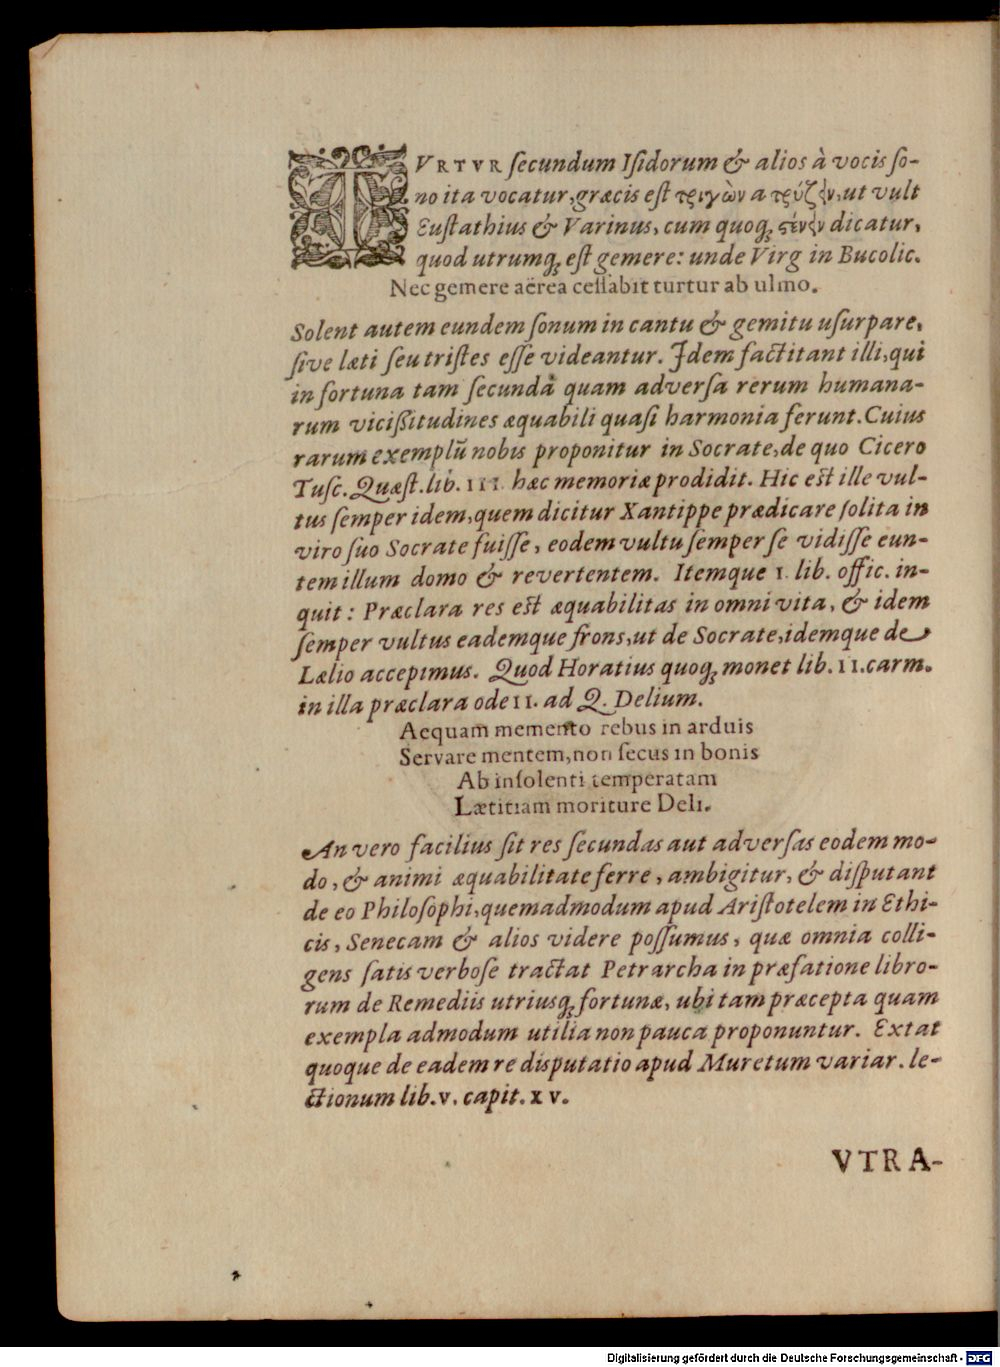 TVRTVR secundum Isidorum & alios à vocis so-
no ita vocatur, græcis est τριγὼν a τρύζειν, ut vult
Eustathius & Varinus, cum quoq; στένειν dicatur,
quod utrumq; est gemere: unde Virg in Bucolic.
Nec gemere aërea cessabit turtur ab ulmo.
Solent autem eundem sonum in cantu & gemitu usurpare,
sive læti seu tristes esse videantur. Idem factitant illi, qui
in fortuna tam secundâ quam adversa rerum humana-
rum vicißitudines æquabili quasi harmonia ferunt. Cuius
rarum exemplũ nobis proponitur in Socrate, de quo Cicero
Tusc. Quæst. lib. III. hæc memoriæ prodidit. Hic est ille vul-
tus semper idem, quem dicitur Xantippe prædicare solita in
viro suo Socrate fuisse, eodem vultu semper se vidisse eun-
tem illum domo & revertentem. Itemque I. lib. offic. in-
quit: Præclara res est æquabilitas in omni vita, & idem
semper vultus eademque frons, ut de Socrate, idemque de
Lælio accepimus. Quod Horatius quoq; monet lib. II. carm.
in illa præclara ode II. ad Q. Delium.
Aequam memento rebus in arduis
Servare mentem, non secus in bonis
Ab insolenti temperatam
Lætitiam moriture Deli.
An vero facilius sit res secundas aut adversas eodem mo-
do, & animi æquabilitate ferre, ambigitur, & disputant
de eo Philosophi, quemadmodum apud Aristotelem in Ethi-
cis, Senecam & alios videre possumus, quæ omnia colli-
gens satis verbose tractat Petrarcha in præfatione libro-
rum de Remediis utriusq; fortunæ, ubi tam præcepta quam
exempla admodum utilia non pauca proponuntur. Extat
quoque de eadem re disputatio apud Muretum variar. le-
ctionum lib. V. capit. XV.
VTRA-
Digitalisierung gefördert durch die Deutsche Forschungsgemeinschaft - DFG